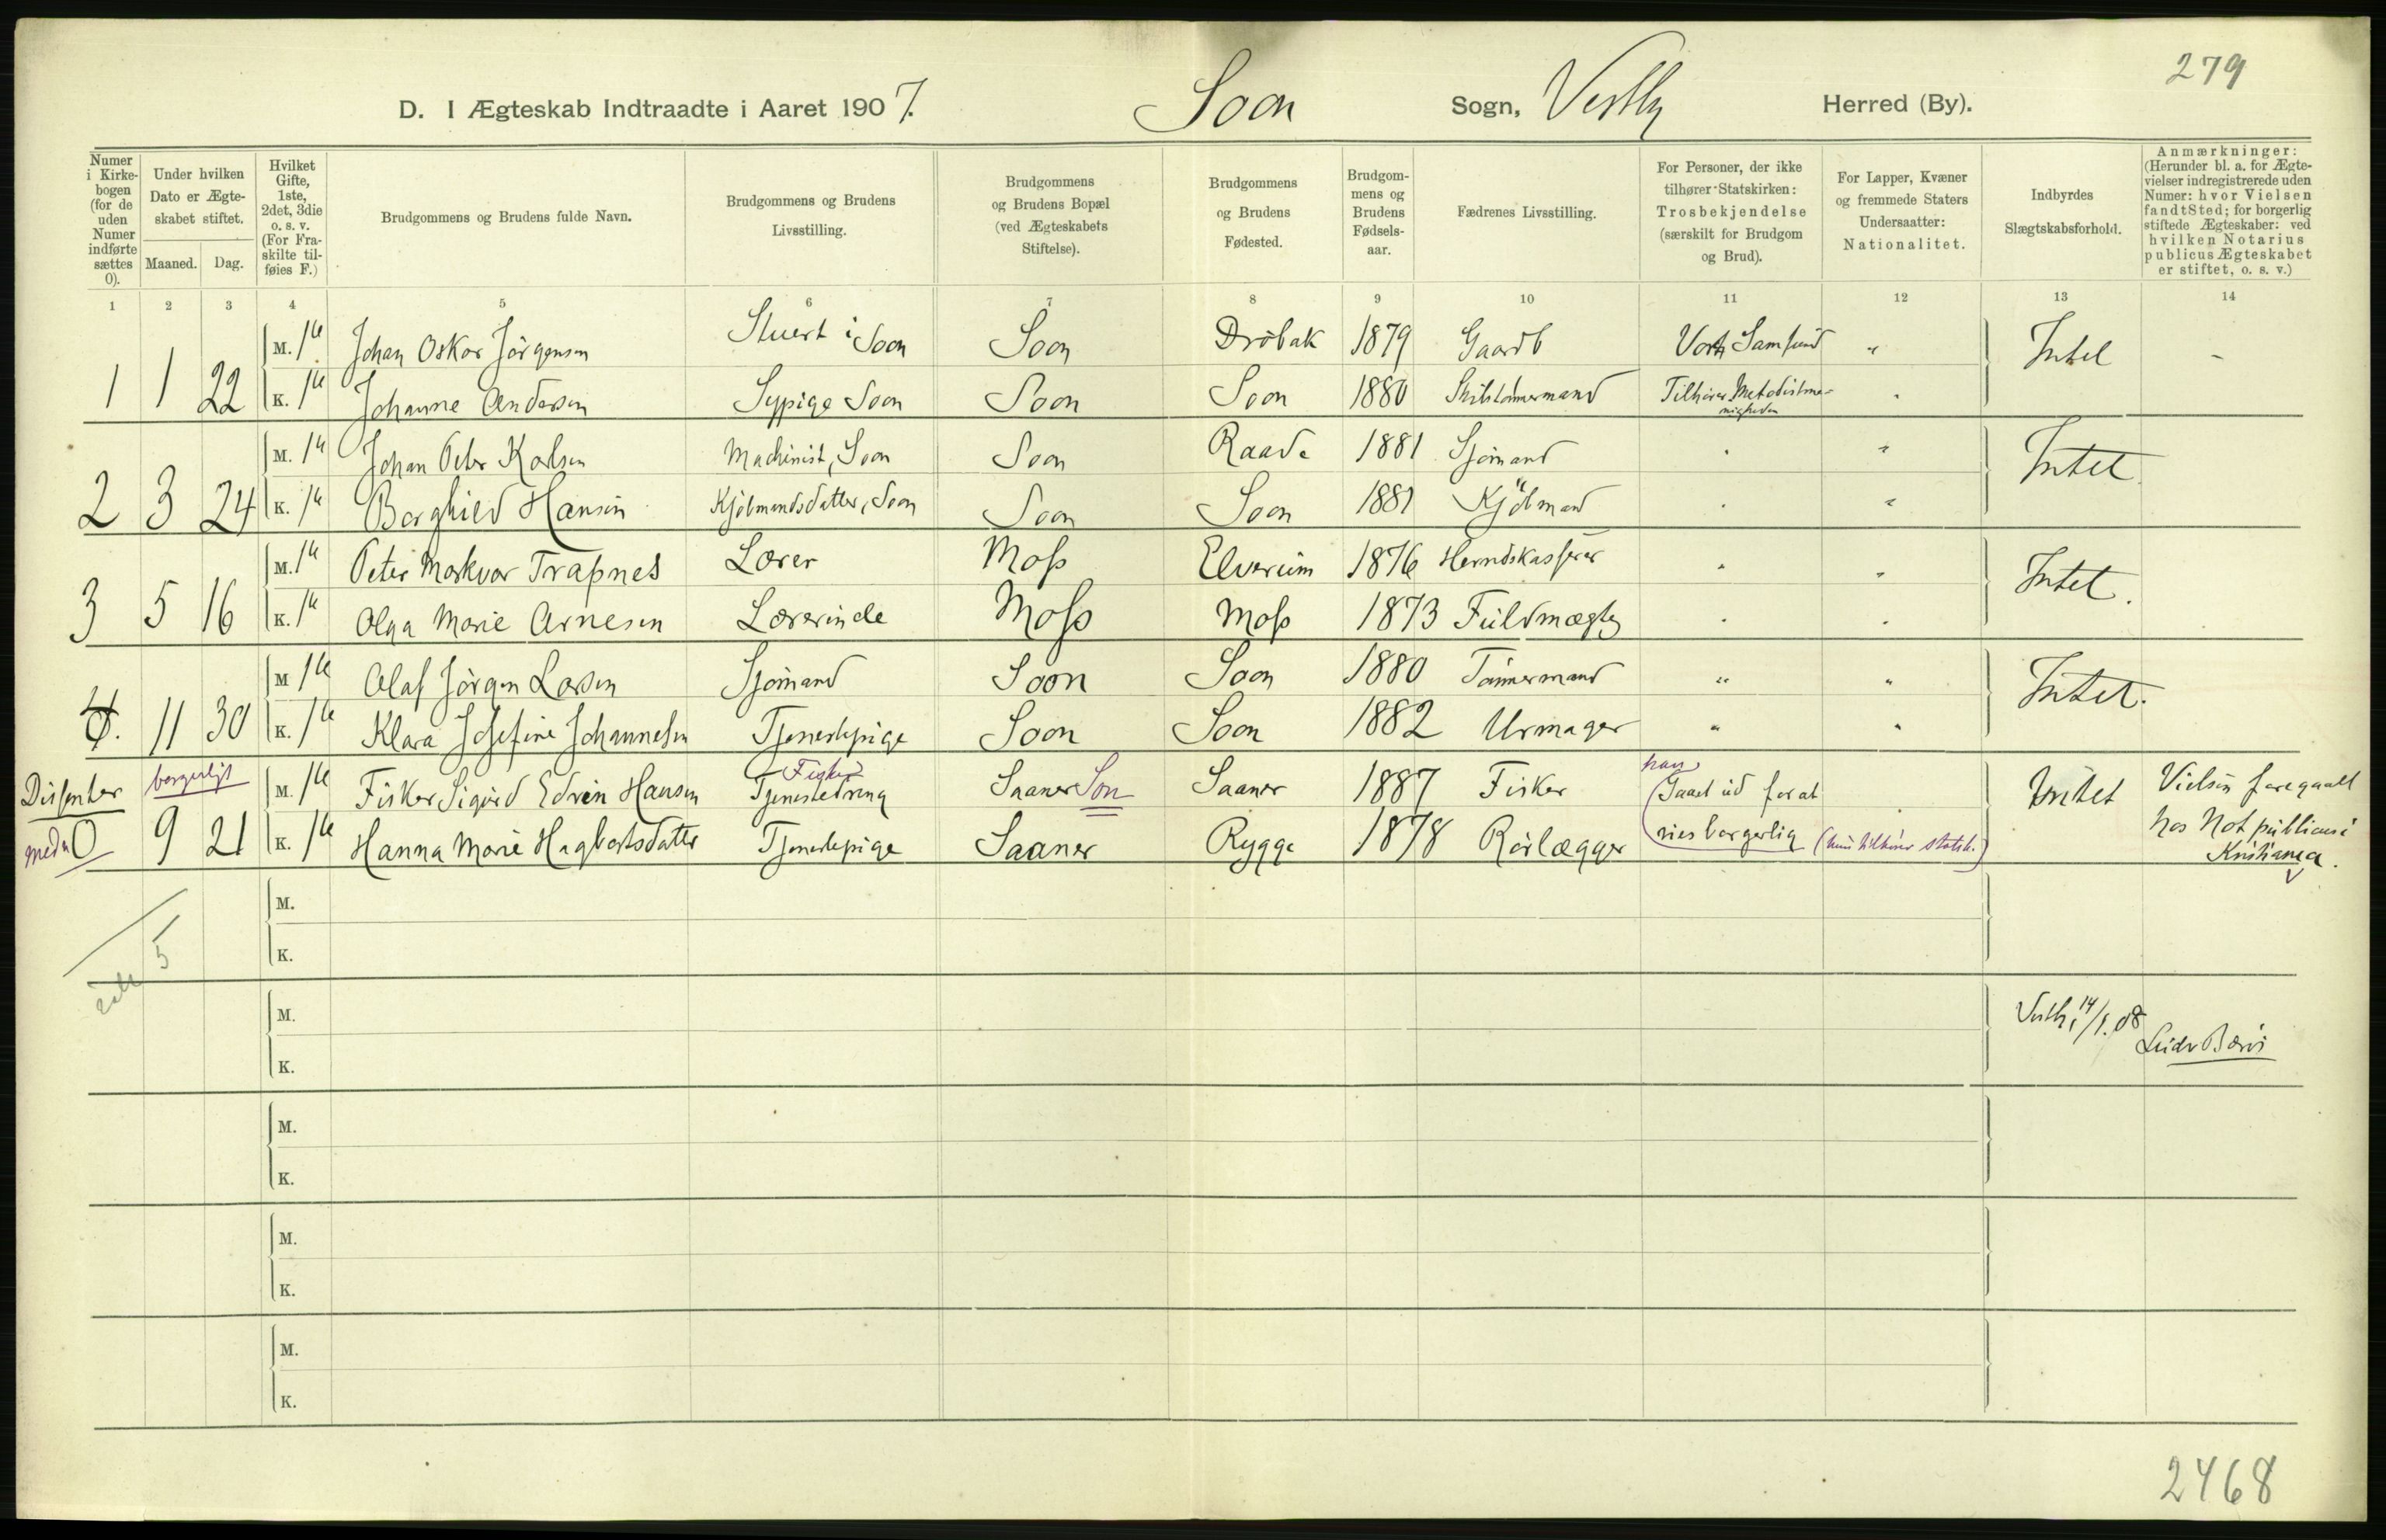 279
D. I Ægteskab Indtraadte i Aaret 1907. Soon Sogn, Vestby Herred (By).
Numer i Kirke-bogen (for de uden Numer indførte sættes 0).
Under hvilken Dato er Ægte-skabet stiftet.
Maaned. Dag.
Hvilket Gifte, 1ste, 2det, 3die o. s. v. (For Fra-skilte til-føies F.)
Brudgommens og Brudens fulde Navn.
Brudgommens og Brudens Livsstilling.
Brudgommens og Brudens Bopæl (ved Ægteskabets Stiftelse).
Brudgommens og Brudens Fødested.
Brudgom-mens og Brudens Fødsels-aar.
Fædrenes Livsstilling.
For Personer, der ikke tilhører Statskirken: Trosbekjendelse (særskilt for Brudgom og Brud).
For Lapper, Kvæner og fremmede Staters Undersaatter: Nationalitet.
Indbyrdes Slægtskabsforhold.
Anmærkninger: (Herunder bl. a. for Ægte-vielser indregistrerede uden Numer: hvor Vielsen fandt Sted; for borgerlig stiftede Ægteskaber: ved hvilken Notarius publicus Ægteskabet er stiftet, o. s. v.)
1 2 3 4 5 6 7 8 9 10 11 12 13 14
M. 1ste Johan Oskar Jörgensen Stuert i Soon Soon Dröbak 1879 Gaardb Vort Samfund " Intet -
1 1 22 K. 1ste Johanne Andersen Sypige Soon Soon Soon 1880 Skibstömmermand Tilhörer Metodistme-
nigheden
M. 1ste Johan Peter Karlsen Machinist, Soon Soon Raade 1881 Sjömand " " Intet
2 3 24 K. 1ste Borghild Hansen Kjöbmandsdatter, Soon Soon Soon 1881 Kjöbmand " "
M. 1ste Peter Markvar Trapnes Lærer Moss Elverum 1876 Herredskasserer " " Intet.
3 5 16 K. 1ste Olga Marie Arnesen Lærerinde Moss Moss 1873 Fuldmægtig " "
M 1ste Olaf Jörgen Larsen Sjömand Soon Soon 1880 Tömmermand " " Intet.
4. 11 30 K. 1ste Klara Josefine Johannesen Tjenestepige Soon Soon 1882 Urmager " "
Dissenter borgerligt M. 1ste Fisker Sigurd Edvin Hansen Tjenestedreng Fisker Saaner Son Saaner 1887 Fisker han (Gaaet ud for at Intet Vielsen foregaaet
0 9 21 K. 1ste Hanna Marie Hagbartsdatter Tjenestepige Saaner Rygge 1878 Rörlægger vies borgerlig (hun tilhörer statsk.) hos Not publicus i
Kristiania.
M.
5
K.
M. 14/1.08
K.
M.
K.
M.
K.
M.
K.
2468